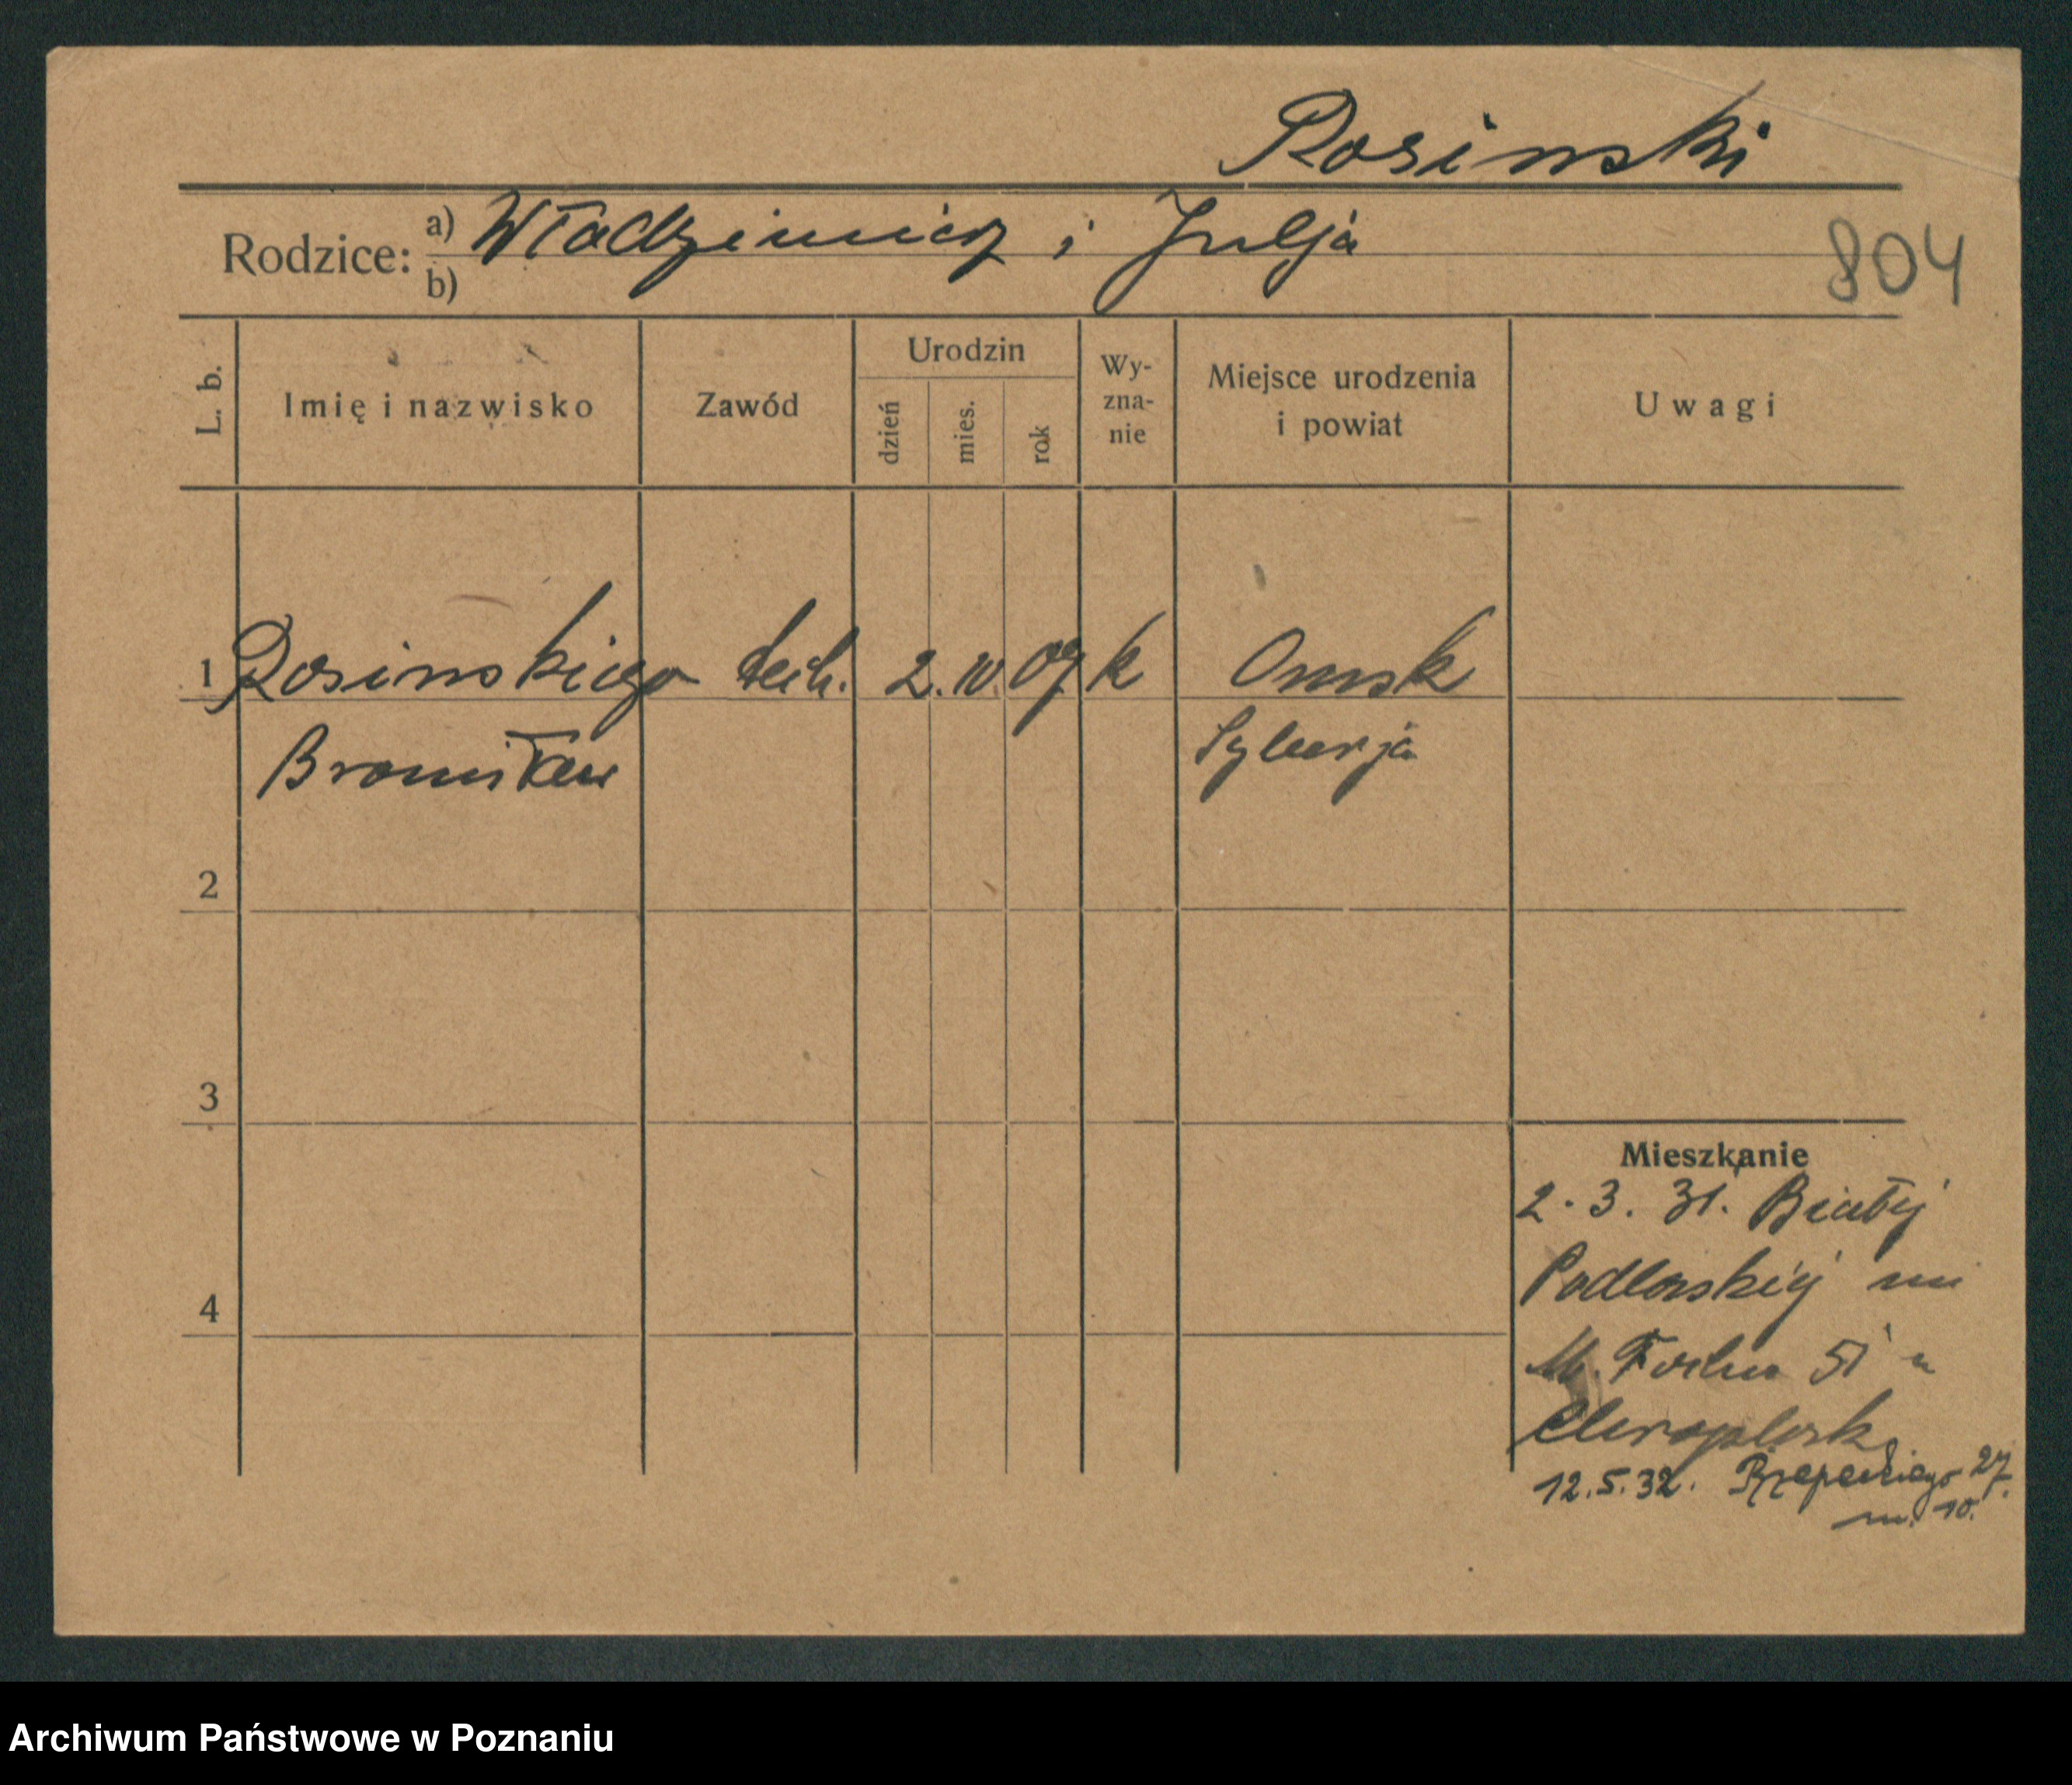 Rosinski
Rodzice: a) Włodzimierz i Julja
b)
804
L. b. Imię i nazwisko Zawód Urodzin dzień mies. rok Wy-zna-nie Miejsce urodzenia i powiat Uwagi
1 Rosinskiego tech. 2. 10. 07 k Omsk
Bronisław Syberja
2
3
4
Mieszkanie
2. 3. 31. Białej
Podlaskiej
M. 51
12.5.32. 27.
m. 10.
Archiwum Państwowe w Poznaniu